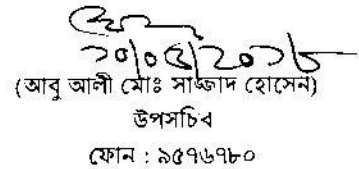 ১০/০৫/২০১৮
(আবু আলী মোঃ সাজ্জাদ হোসেন)
উপসচিব
ফোন : ৯৫৭৬৭৮০